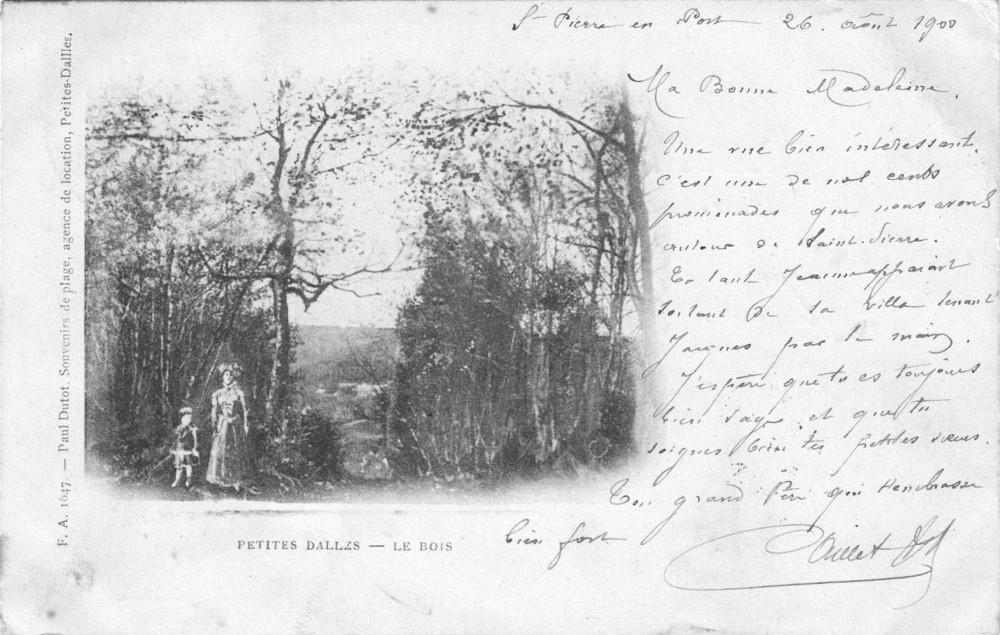 St Pierre en Port 26. Août 1900
Ma Bonne Madeleine,
Une vue bien intéressant,
c'est une de nos cents
promenades que nous avons
autour de Saint-Pierre.
Ta tant Jeanne apparait
sortant de sa villa tenant
Jacques par la main.
J'espère que tu es toujours
bien sage et que tu
soignes bien tes petites sœurs.
Ton grand Père qui t'embrasse
bien fort
PETITES DALLES — LE BOIS
F. A. 1647. — Paul Dutot. Souvenirs de plage, agence de location, Petites-Dallles.